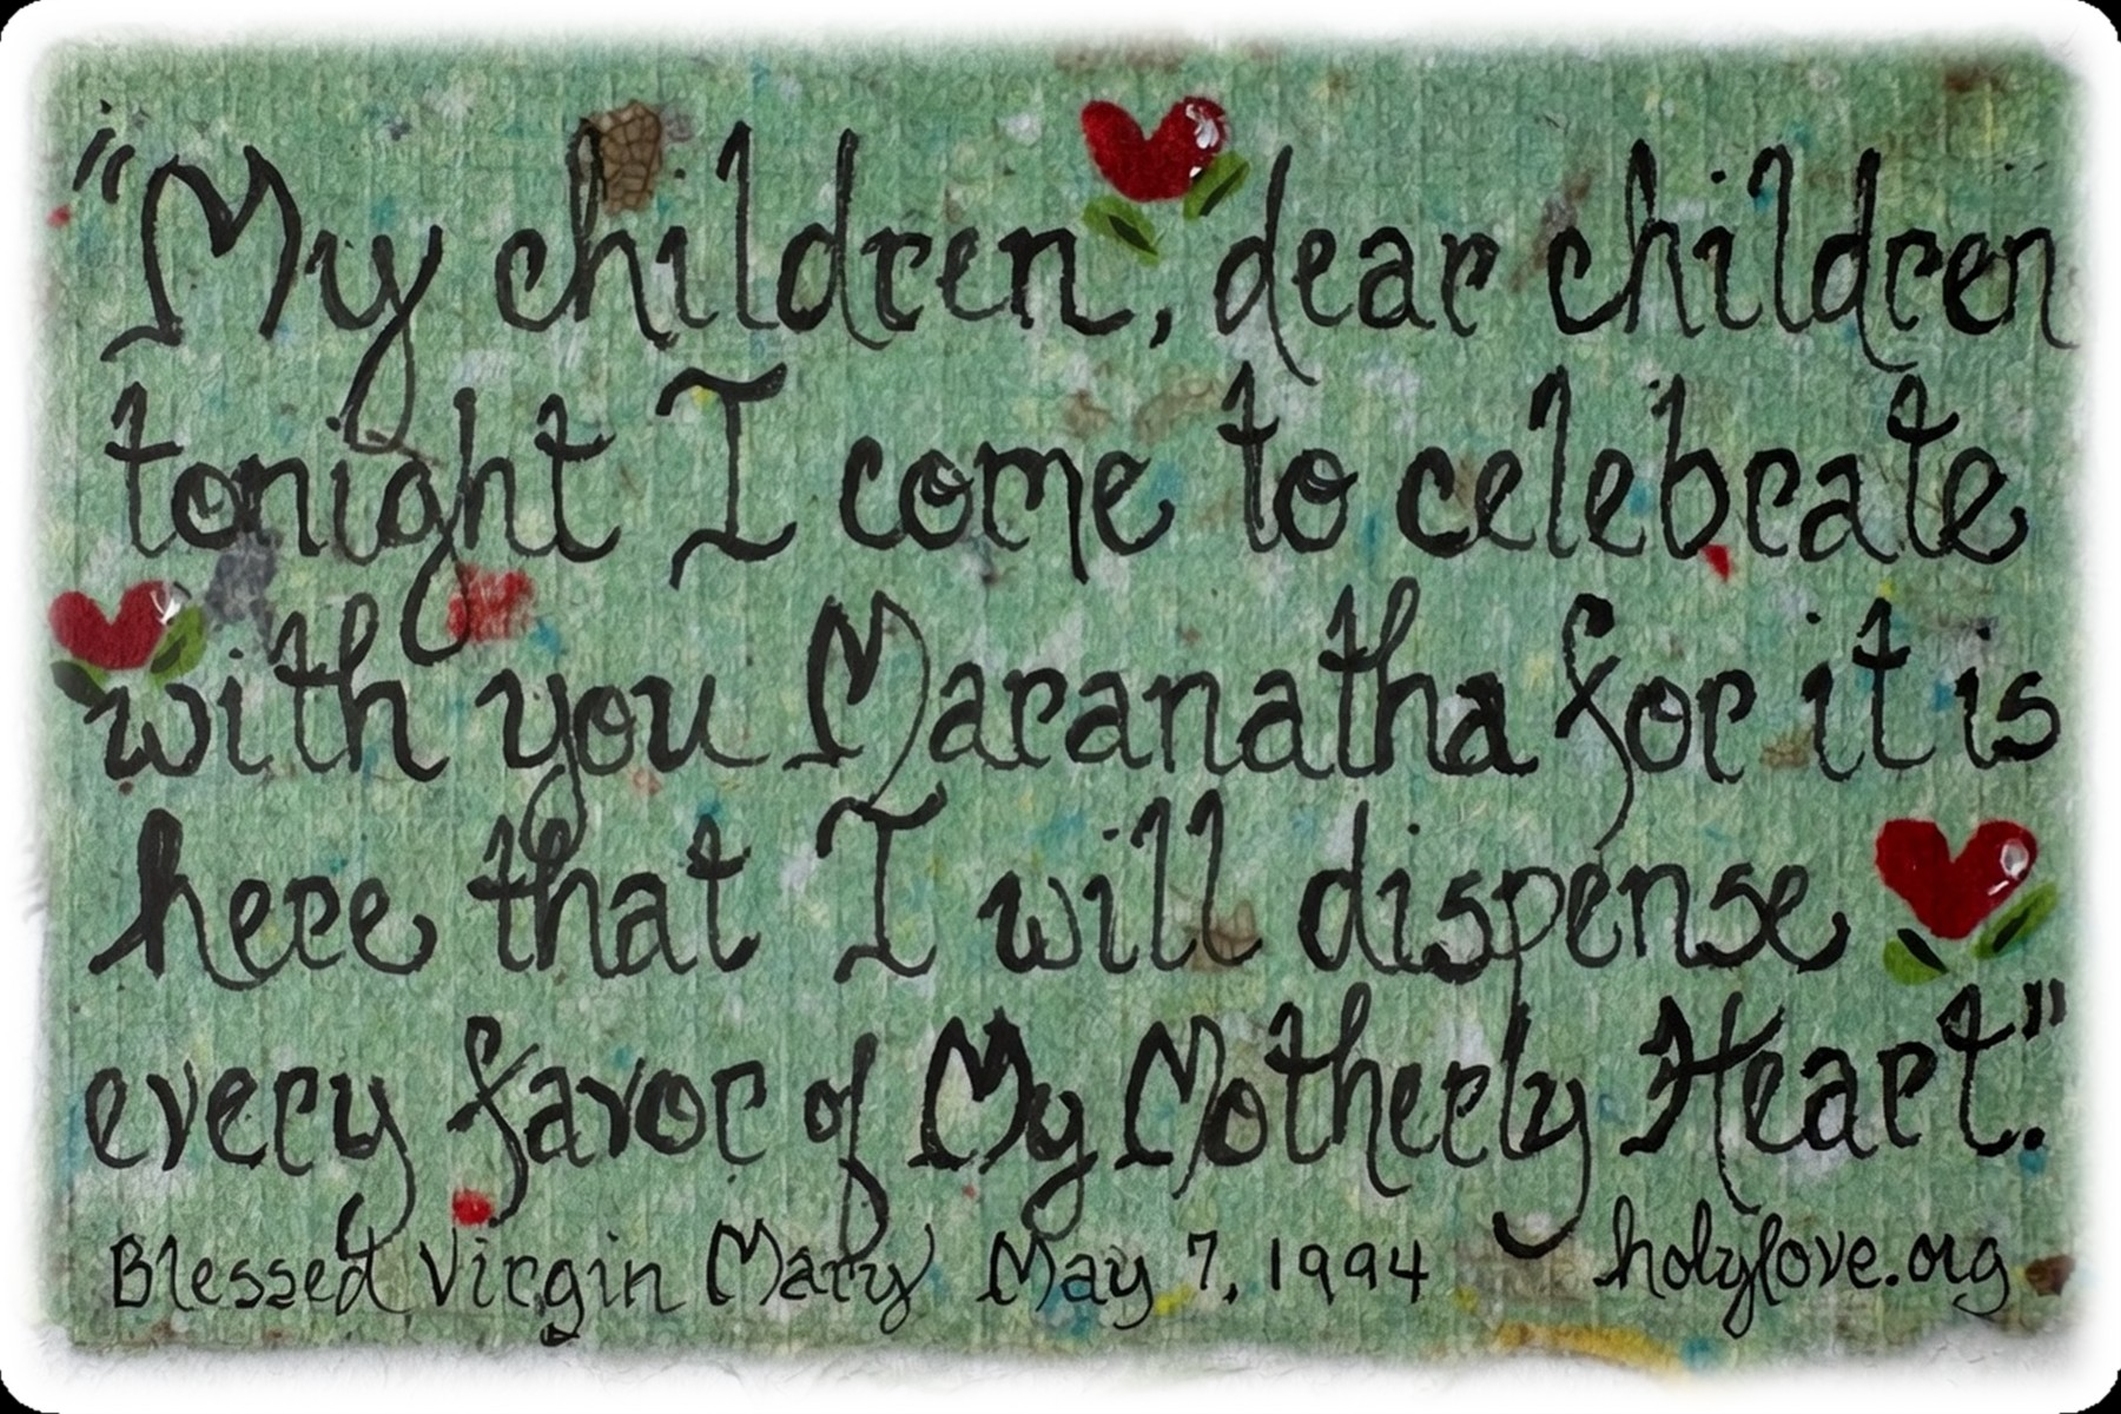 "My children, dear children
tonight I come to celebrate
with you Maranatha for it is
here that I will dispense
every favor of My Motherly Heart."
Blessed Virgin Mary May 7, 1994 holylove.org